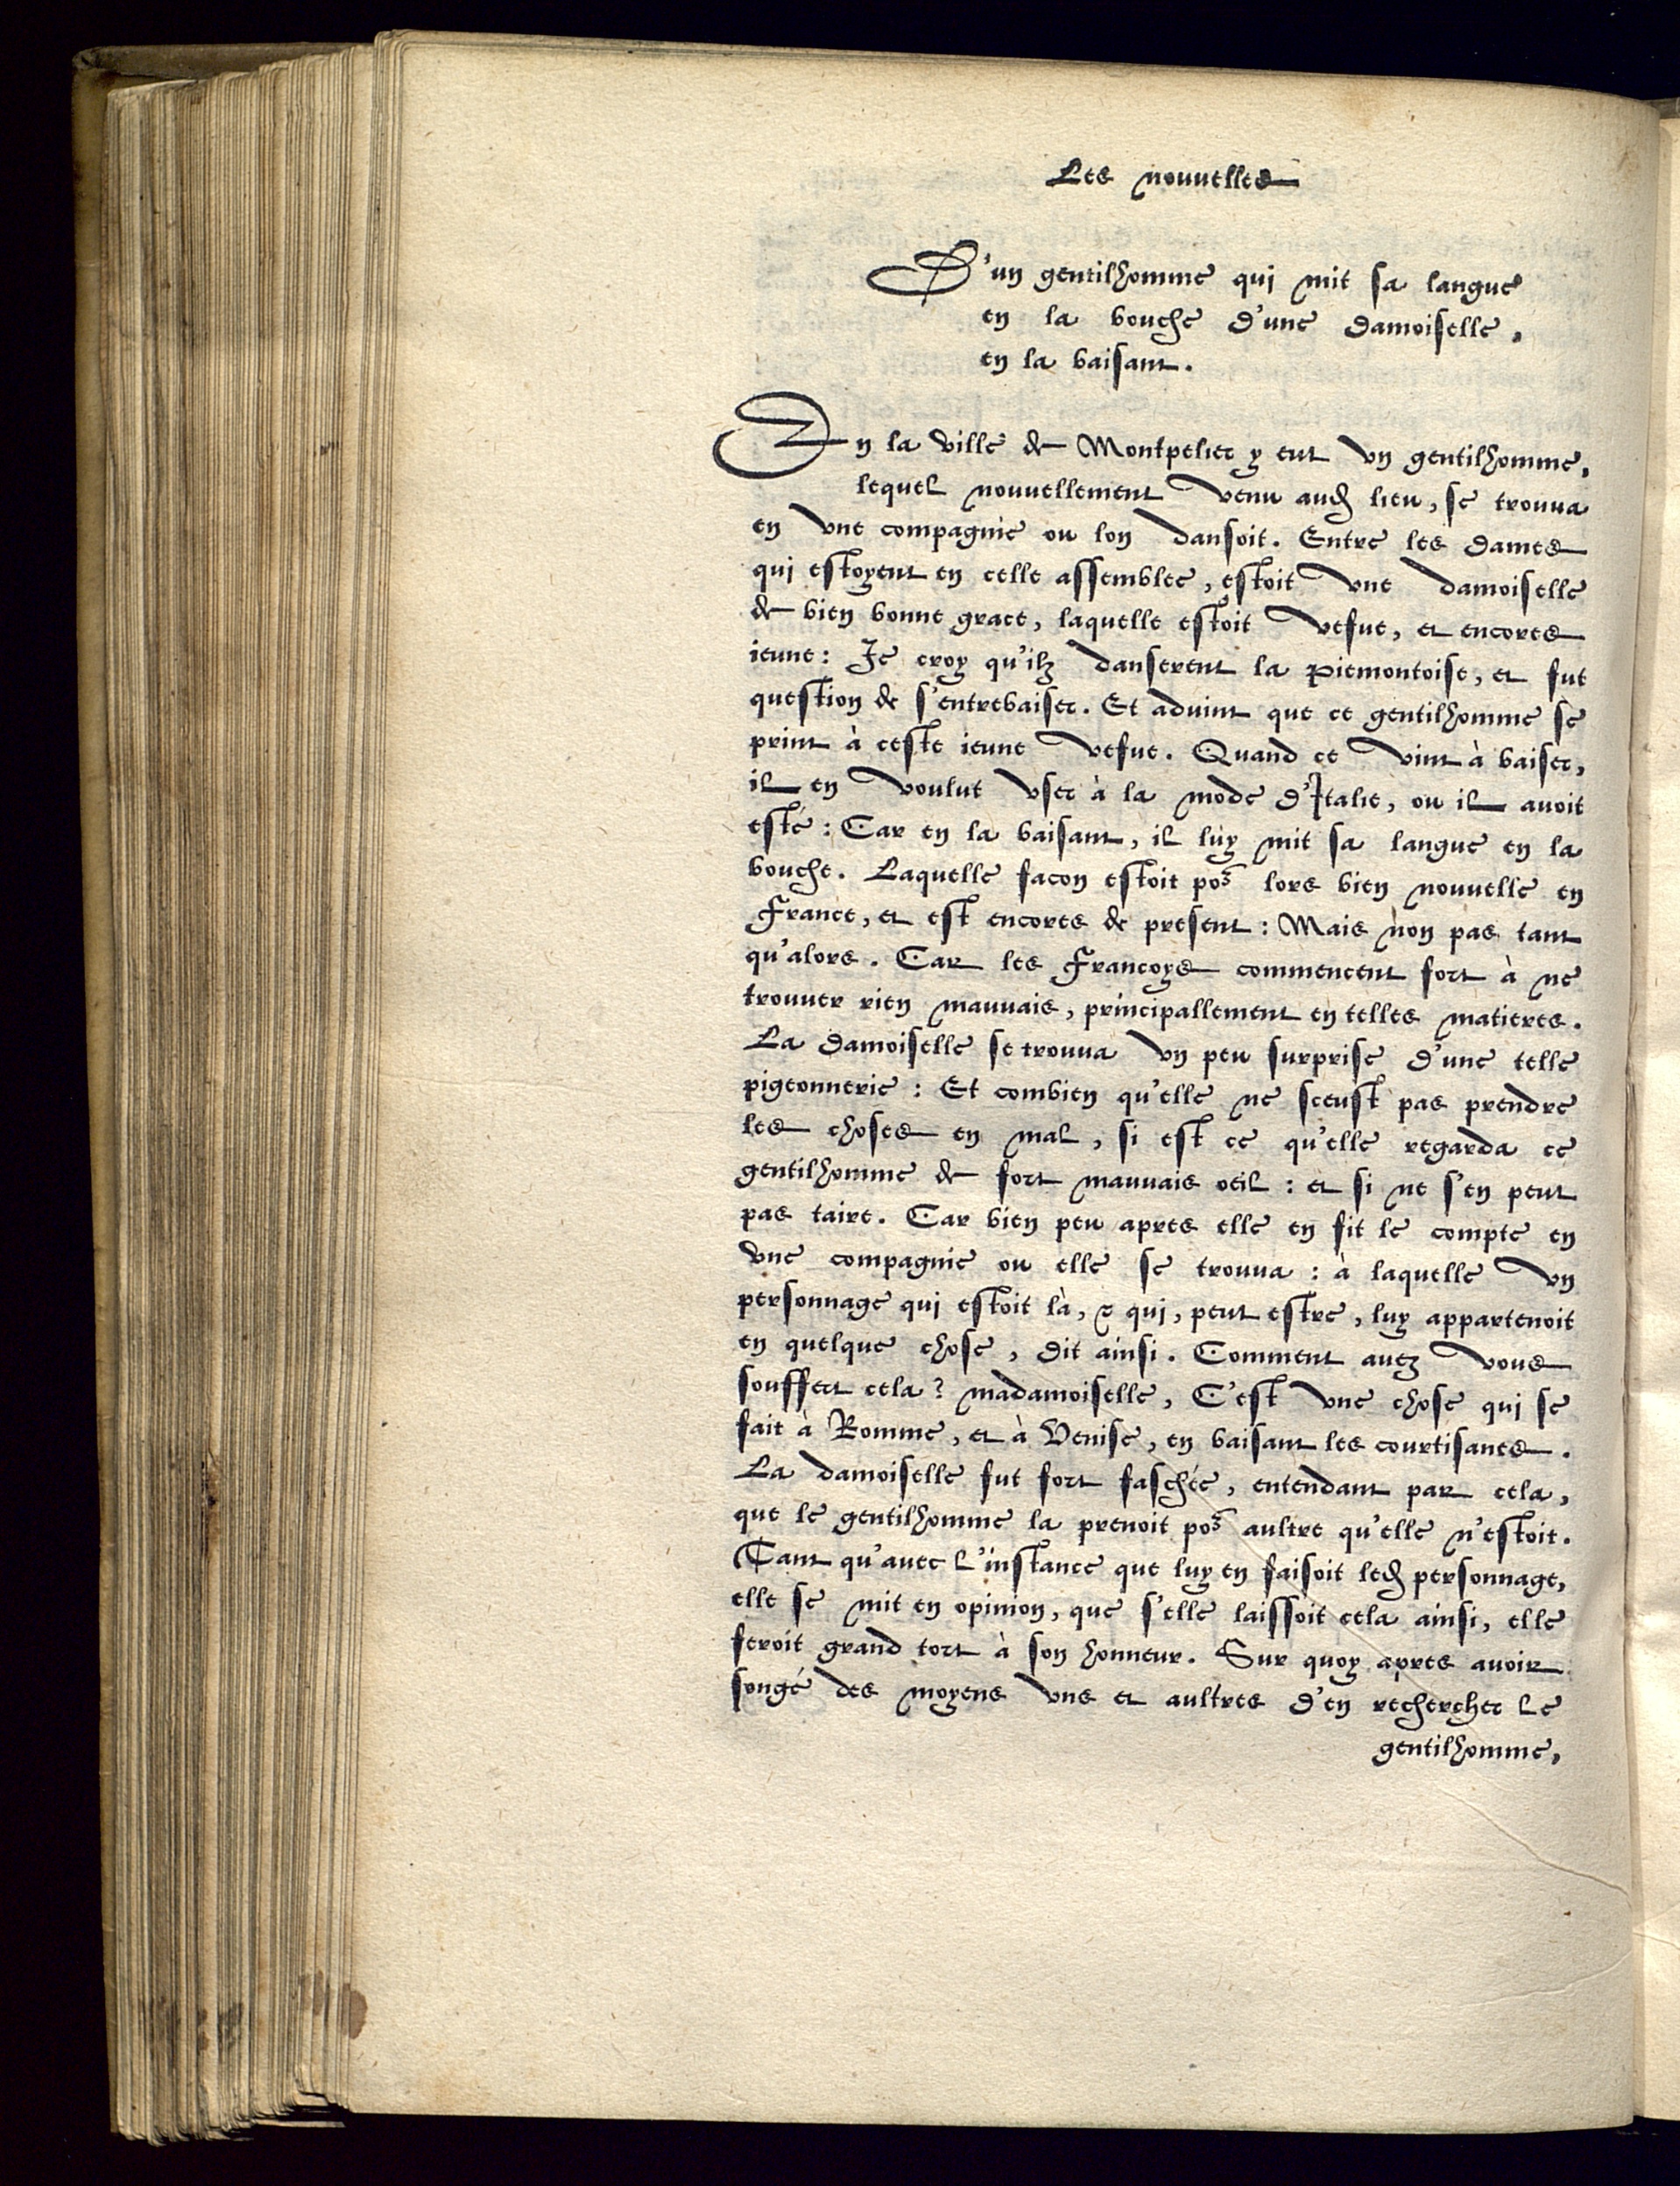 Les nouuelles
D'un gentilhomme qui mit sa langue
en la bouche d'une damoiselle,
en la baisant.
En la ville de Montpelier y eut vn gentilhomme,
lequel nouuellement venu aud lieu, se trouua
en vne compagnie ou lon dansoit. Entre les dames
qui estoyent en celle assemblee, estoit vne damoiselle
de bien bonne grace, laquelle estoit vefue, et encores
ieune: Je croy qu'ilz danserent la piemontoise, et fut
question de s'entrebaiser. Et aduint que ce gentilhomme se
print à ceste ieune vefue. Quand ce vint à baiser,
il en voulut vser à la mode d'Italie, ou il auoit
esté: Car en la baisant, il luy mit sa langue en la
bouche. Laquelle facon estoit por lors bien nouuelle en
France, et est encores de present: Mais non pas tant
qu'alors. Car les Francoys commencent fort à ne
trouuer rien mauuais, principallement en telles matieres.
La damoiselle se trouua vn peu surprise d'une telle
pigeonnerie: Et combien qu'elle ne sceust pas prendre
les choses en mal, si est ce qu'elle regarda ce
gentilhomme de fort mauuais oeil: et si ne s'en peut
pas taire. Car bien peu apres elle en fit le compte en
vne compagnie ou elle se trouua: à laquelle vn
personnage qui estoit là, & qui, peut estre, luy appartenoit
en quelque chose, dit ainsi. Comment auez vous
souffert cela? madamoiselle, C'est vne chose qui se
fait à Romme, et à Venise, en baisant les courtisanes.
La damoiselle fut fort faschée, entendant par cela,
que le gentilhomme la prenoit por aultre qu'elle n'estoit.
Tant qu'auec l'instance que luy en faisoit led personnage,
elle se mit en opinion, que s'elle laissoit cela ainsi, elle
feroit grand tort à son honneur. Sur quoy apres auoir
songé des moyens vns et aultres d'en rechercher le
gentilhomme,